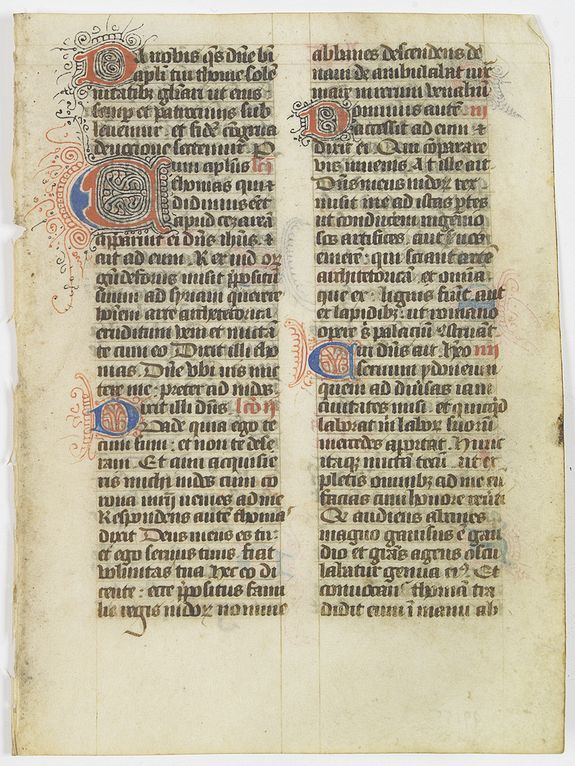 Da nobis qs dne bti
apli tui thome sole
nitatibz gliari ut eius
semp et patrociniis sub
leuemur et fide cogrua
deuocione sectemur P
Cum aplus lco
thomas qui et
didimus eet
apud cezarea
apparuit ei dns ihus et
ait ad eum Rex indor
gundeforus misit ppositu
suum ad syriam querere
hoiem arte architectorica
eruditum veni et mitta
te cum eo Dixit illi tho
mas Dne vbi vis mit
te me preter ad indos
Dixit illi dns lco ii
Vade quia ego te
cum sum et non te dese
ram Et cum acquisie
ris michi indos cum co
rona mrii venies ad me
Respondens aute thomas
dixit Deus meus es tu
et ego seruus tuus fiat
voluntas tua Hec eo di
cente ecce ppositus fami
lie regis indor nomine
abbanes descendens de
naui deambulabat
Dominus aute iii
accessit ad eum et
dixit ei Quid comparare
vis iuuenis At ille ait
Dns meus indor rex
misit me ad istas ptes
ut conducerem ingenio
sos artifices aut uel
emere qui sciant arte
architectorica et omia
que ex lignis fiunt aut
et lapidibz ut romano
opere palacium
Cui dns ait Heo iiii
seruum ydoneum
quem ad diuersas iam
ciuitates misi et quicqd
laborat in labor suorum
mercedes apportat Hunc
itaqz mitta tecu ut ex
pletis omnibz ad me eu
facias cum honore reuti
Et audiens abbanes
magno gauisus e gau
dio et gras agens oscu
labatur genua eius Et
conuocans thomam tra
didit eum i manu ab